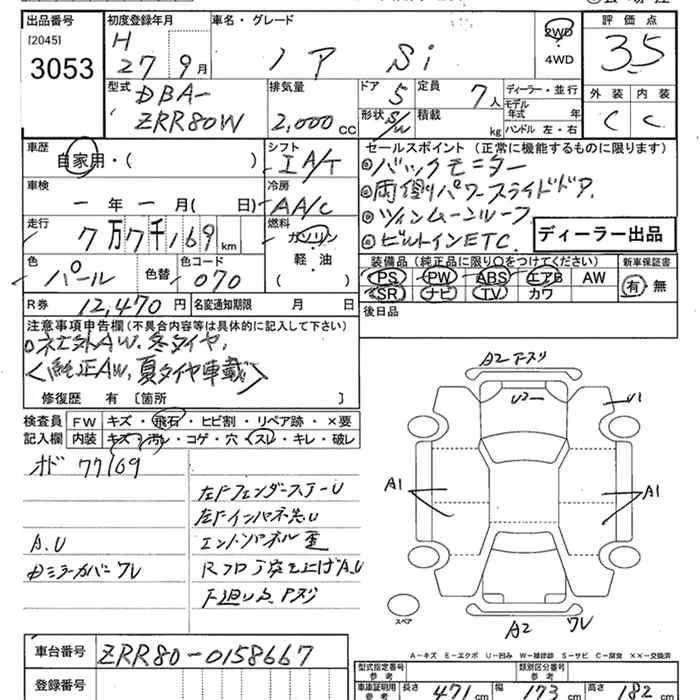 出品番号
[2045]
3053
初度登録年月
H
27年9月
車名・グレード
ノア Si
2WD
・
4WD
評価点
3.5
外装 内装
C C
型式
DBA-
ZRR80W
排気量
2,000 CC
ドア
5
形状 S/W
定員
7人
積載
kg
ディーラー・並行
モデル
年式 年
ハンドル 左・右
車歴
自家用・( )
シフト
IA/T
セールスポイント (正常に機能するものに限ります)
◎バックモニター
◎両側パワースライドドア.
◎ツインムーンルーフ
◎ビルトインETC.
ディーラー出品
車検
ー年ー月( 日)
冷房
AA/C
走行
7万7千169km
燃料
ガソリン
軽・油
( )
色
パール
色替
色コード
070
装備品 (純正品に限り○をつけてください)
PS PW ABS エアB AW
SR ナビ TV カワ
新車保証書
有・無
R券 12,470円
名変通知期限 月 日
後日品
注意事項申告欄(不具合内容等は具体的に記入して下さい)
○社外AW、冬タイヤ.
<純正AW、夏タイヤ車載>
修復歴 有 〔箇所 〕
検査員
記入欄
FW キズ・飛石・ヒビ割・リペア跡・×要
内装 キズ・汚レ・コゲ・穴・スレ・キレ・破レ
オド 77169
左Fフェンダー
左Fインパネ
エンドパネル
A.U
Dミラーカバー ワレ
A2
U2
U1
A1
A1
A2 ワレ
スペア
A-キズ E-エクボ U-凹み W-補修跡 S-サビ C-腐食 XX-交換済
車台番号
ZRR80-0158667
登録番号
型式指定番号
参考
類別区分番号
参考
車庫証明用
参考
長さ 471cm
幅 173cm
高さ 182cm